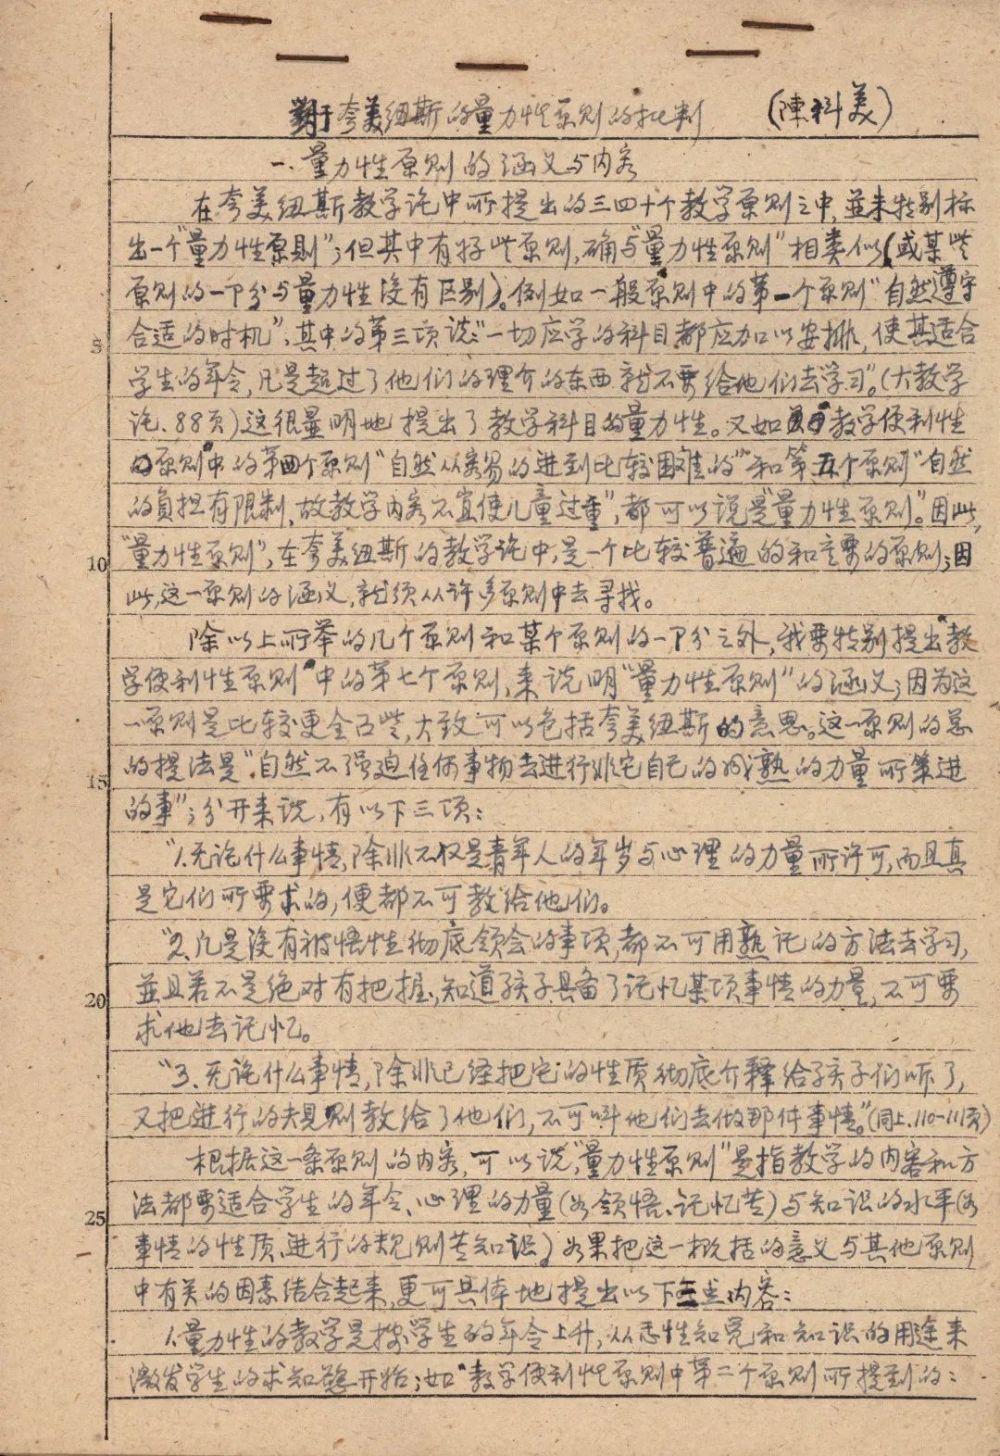 对于夸美纽斯的量力性原则的批判 （陳科美）
一、量力性原则的涵义与内容
在夸美纽斯教学论中所提出的三四十个教学原则之中，並未特别标
出一个“量力性原则”；但其中有好些原则，确与“量力性原则”相类似（或某些
原则的一部分与量力性没有区别）。例如一般原则中的第一个原则“自然遵守
5
合适的时机”，其中的第三项说：“一切应学的科目都应加以安排，使其适合
学生的年令，凡是超过了他们的理介的东西就不要给他们去学习”。（大教学
论、88页）这很显明地提出了教学科目的量力性。又如教学便利性
的原则中的第四个原则“自然从容易的进到比较困难的”和第五个原则“自然
的负担有限制，故教学内容不宜使儿童过重”，都可以说是“量力性原则”。因此，
10
“量力性原则”，在夸美纽斯的教学论中，是一个比较普遍的和主要的原则；因
此，这一原则的涵义，就须从许多原则中去寻找。
除以上所举的几个原则和某个原则的一部分之外，我要特别提出“教
学便利性原则”中的第七个原则，来说明“量力性原则”的涵义；因为这
一原则是比较更全面些，大致可以包括夸美纽斯的意思。这一原则的总
15
的提法是“自然不强迫任何事物去进行非它自己的成熟的力量所策进
的事”；分开来说，有以下三项：
“1.无论什么事情，除非不仅是青年人的年岁与心理的力量所许可，而且真
是它们所要求的，便都不可教给他们。
“2、凡是没有被悟性彻底领会的事项，都不可用熟记的方法去学习，
20
並且若不是绝对有把握，知道孩子具备了记忆某项事情的力量，不可要
求他去记忆。
“3、无论什么事情，除非已经把它的性质彻底介释给孩子们听了，
又把进行的规则教给了他们，不可叫他们去做那件事情。”（同上.110—111页）
根据这一条原则的内容，可以说，“量力性原则”是指教学的内容和方
25
法都要适合学生的年令、心理的力量（如领悟、记忆等）与知识的水平（如
事情的性质、进行的规则等知识）如果把这一概括的意义与其他原则
中有关的因素结合起来，更可具体地提出以下三点内容：
1.量力性的教学是按学生的年令上升，从悉性知觉和知识的用途来
激发学生的求知慾开始；如“教学便利性原则中第二个原则所提到的：